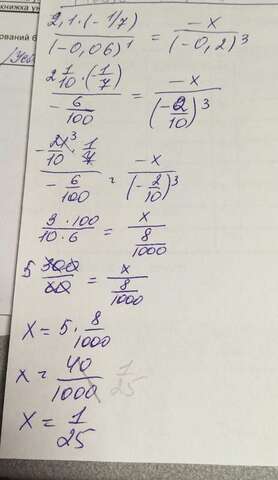 книжка у
ований б
2,1·(-1/7)/(-0,06)¹ = -x/(-0,2)³
2 1/10·(-1/7)/-6/100 = -x/(-2/10)³
-21/10 3·1/7/-6/100 = -x/(-2/10)³
3·100/10·6 = x/8/1000
5 300/60 = x/8/1000
x = 5·8/1000
x = 40/1000 1/25
x = 1/25